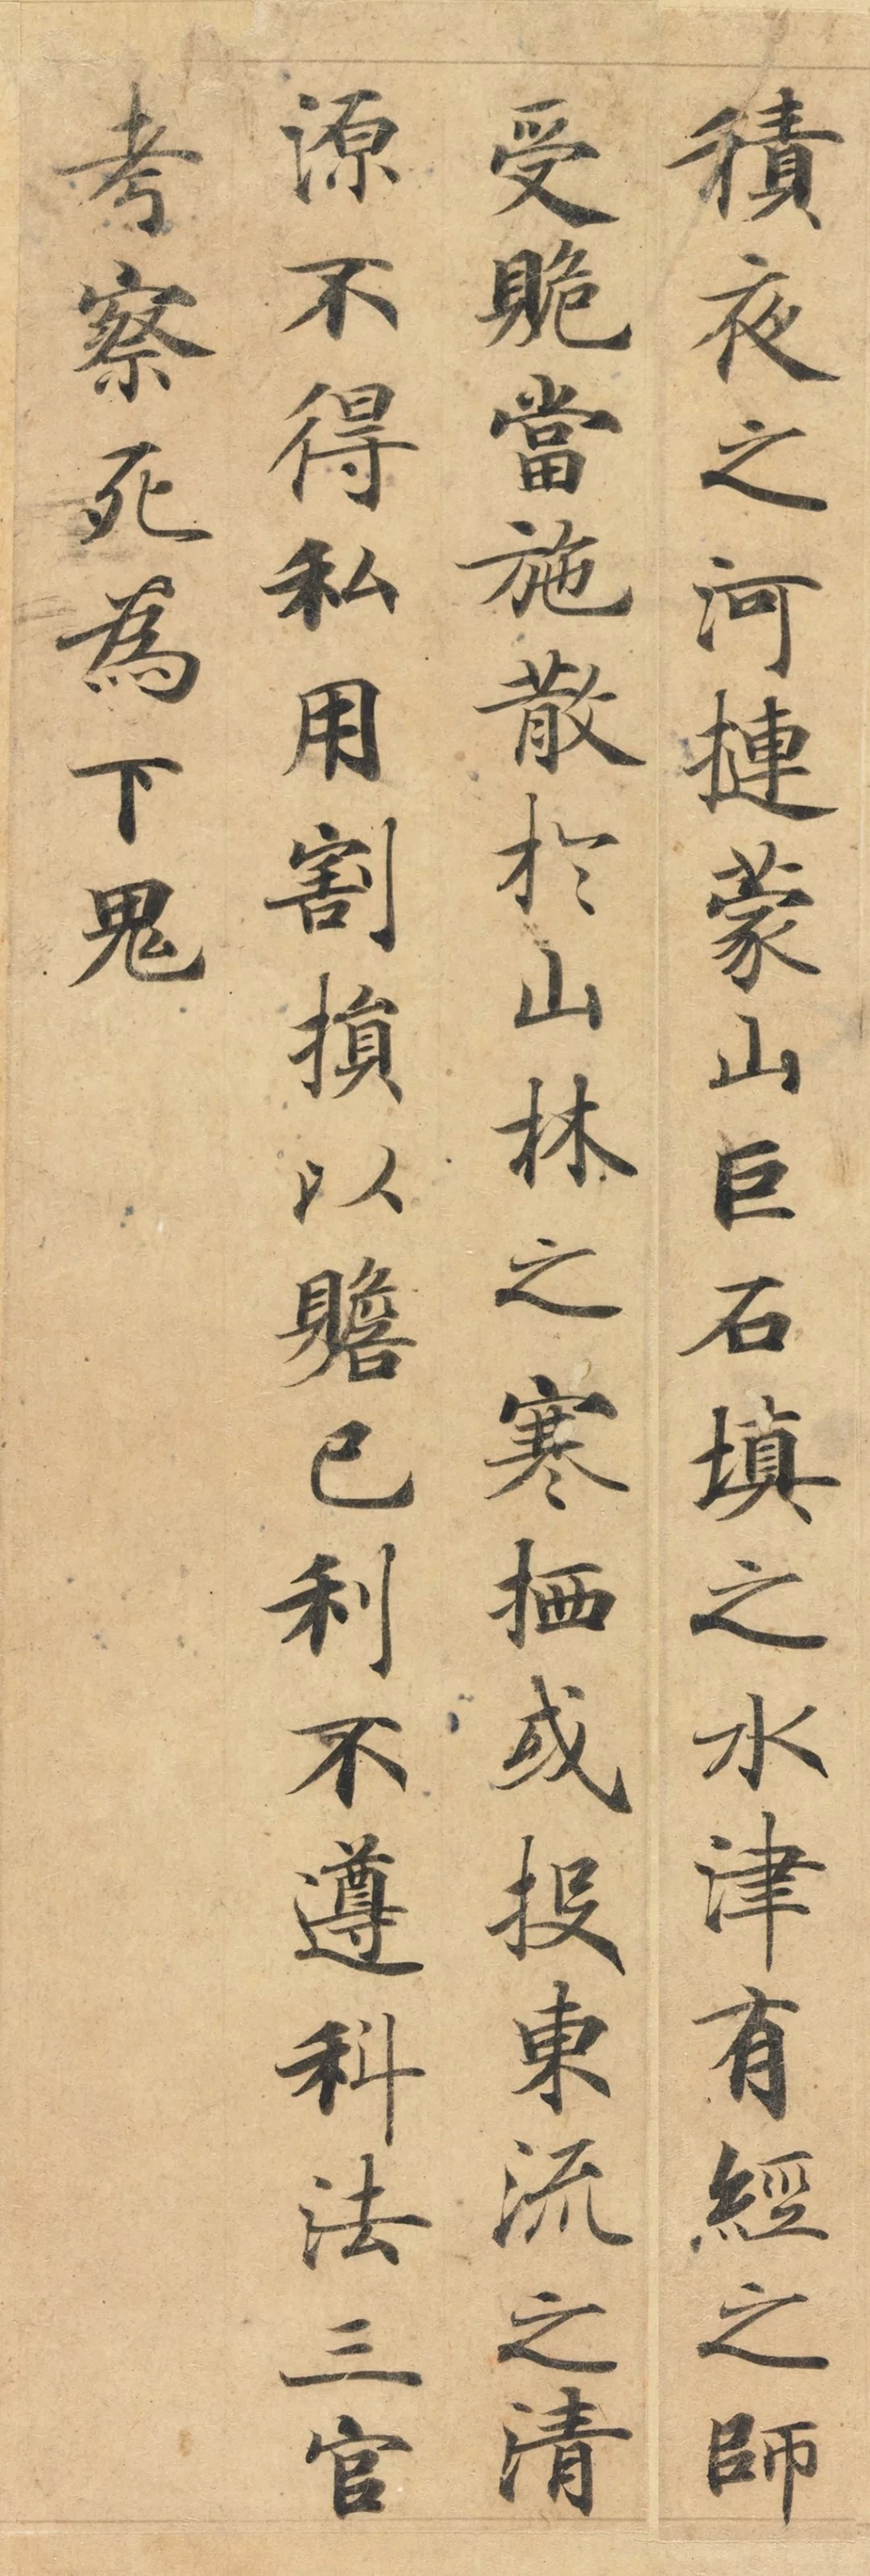 積夜之河摙蒙山巨石填之水津有經之師
受貽當施散於山林之寒栖或投東流之清
源不得私用割損以贍己利不遵科法三官
考察死為下鬼